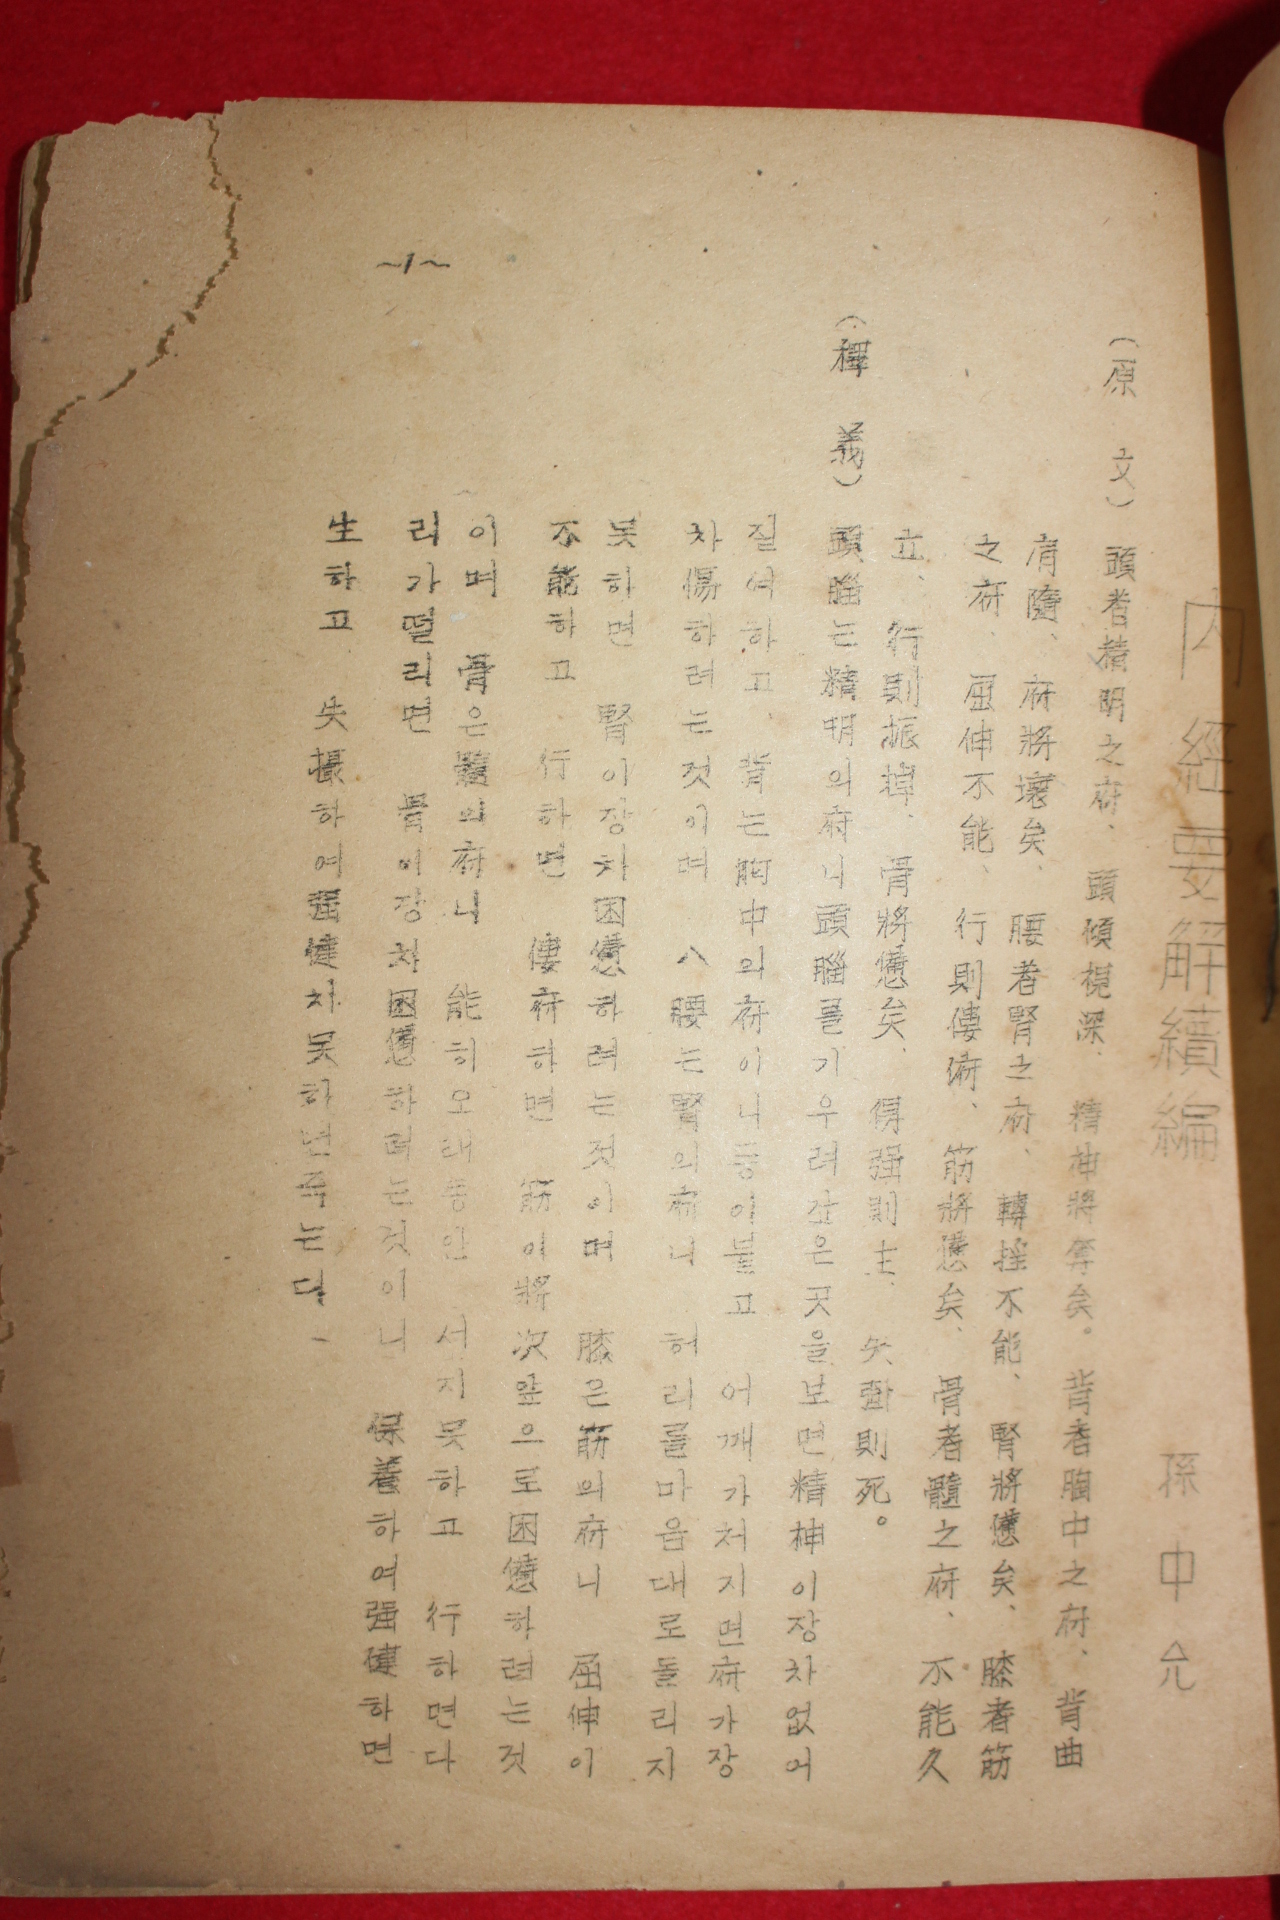 內經要解續編
孫中允
(原文) 頭者精明之府、頭傾視深、精神將奪矣。背者胸中之府、背曲
肩隨、府將壞矣、腰者腎之府、轉搖不能、腎將憊矣、膝者筋
之府、屈伸不能、行則僂俯、筋將憊矣、骨者髓之府、不能久
立、行則振掉、骨將憊矣、得强則生、失强則死。
(釋義) 頭腦는精明의府니頭腦를기우려깊은곳을보면精神이장차없어
질셔하고、背는胸中의府이니등이불고 어깨가처지면府가장
차傷하려는것이며 腰는腎의府니 허리를마음대로돌리지
못하면 腎이장차困憊하려는것이며 膝은筋의府니 屈伸이
不能하고 行하면 僂府하면 筋이將次앞으로困憊하려는것
이며 骨은髓의府니 能히오래동안 서지못하고 行하면다
리가떨리면 骨이장차困憊하려는것이니 保養하여强健하면
生하고、失攝하여强健차못하면죽는다、
~1~